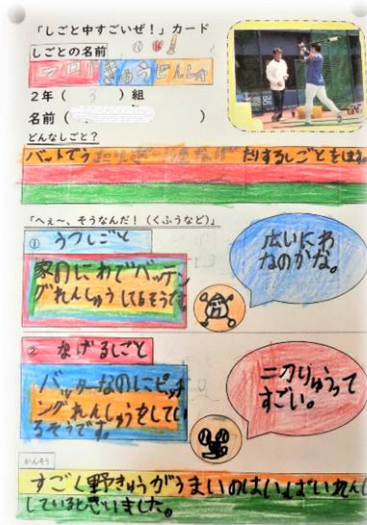 「しごと中すごいぜ！」カード
しごとの名前
2年（ 3 ）組
名前（ ）
どんなしごと？
バットでう たりするしごとをはね
「へぇ～、そうなんだ！（くふうなど）」
① うつしごと
家のにわでバッテン
グれんしゅうしてるそうです。
広いにわ
なのかな。
2 なげるしごと
バッターなのにピッチ
ングれんしゅうをしてい
るそうです。
二刀りゅうって
すごい。
かんそう
すごく野きゅうがうまいのはいっぱいれんし
していると思いました。